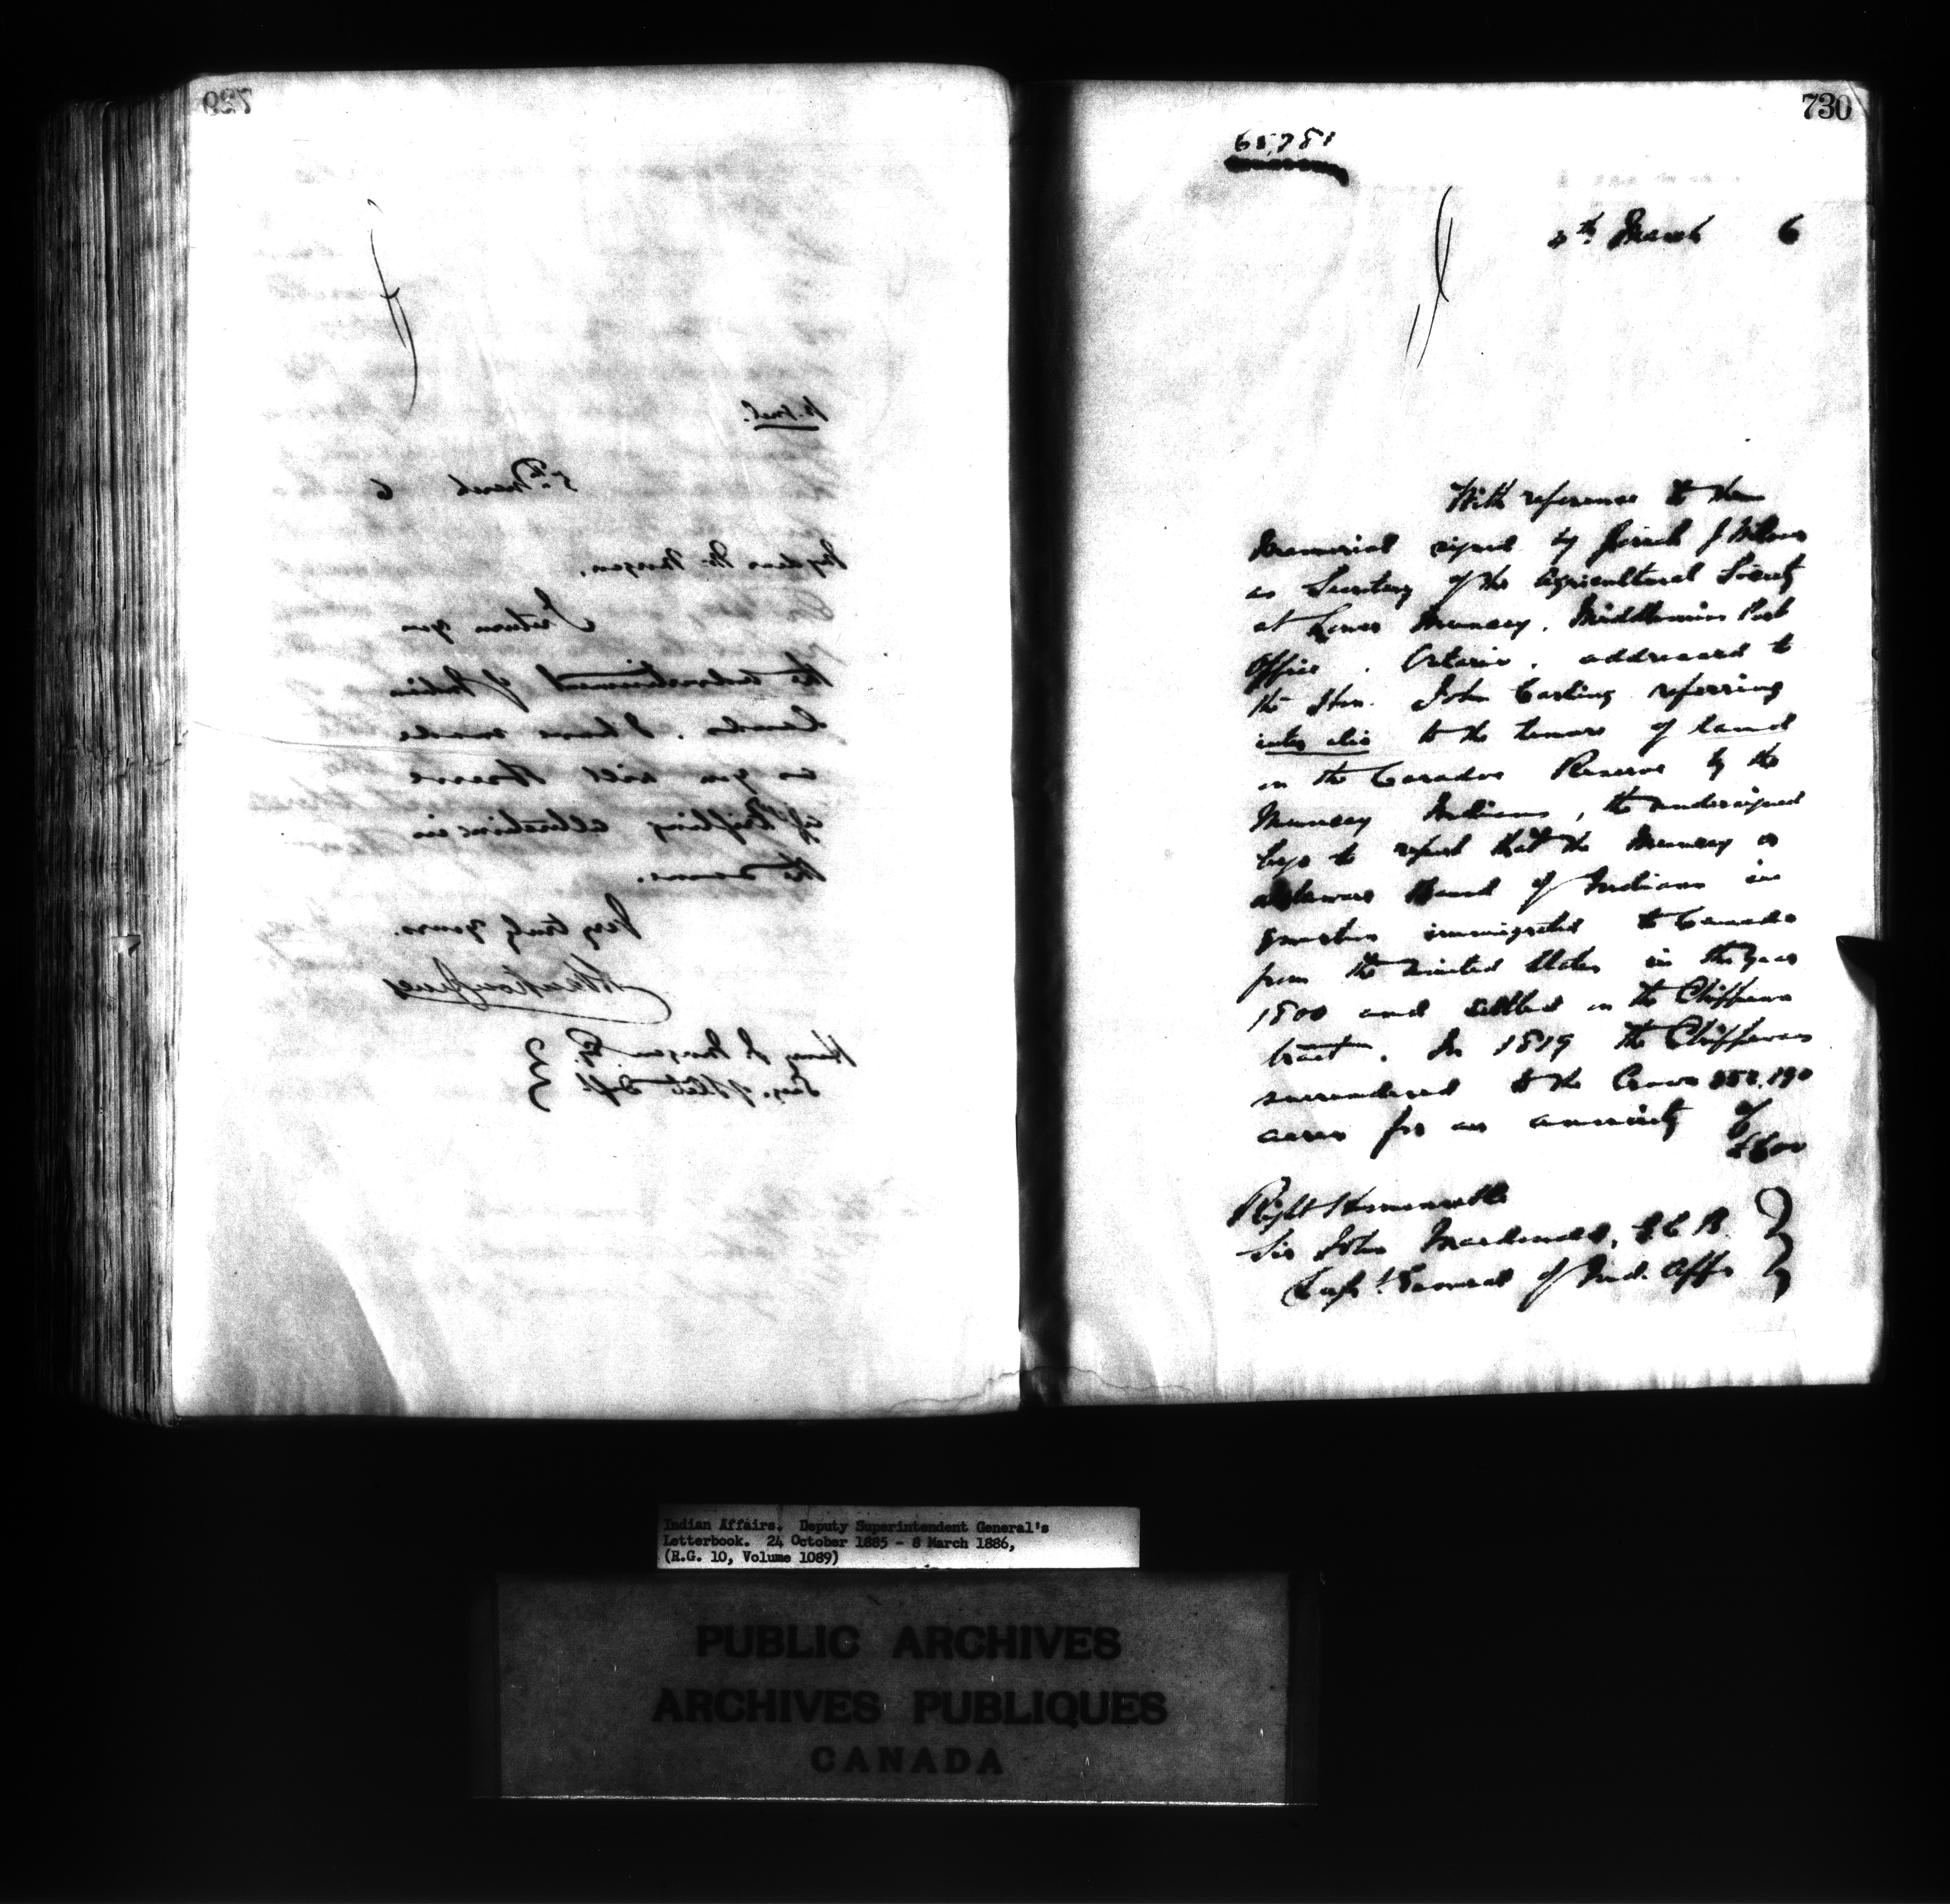 729
N. Incl.
5th March 6
My dear Mr. Morgan,
I return you
the advertisement of Indian
Lands. I have made
as you will observe
a trifling alteration in
the same.
Very truly yours.
Henry J. Morgan Esq.
Dept.
730
65,781
th March 6
With reference to the
Memorial signed by J. Wilson
as Secretary of the Agricultural Society
at Lower Muncey, Middlemiss Post
Office, Ontario, addressed to
the Hon. John Carling referring
inter alia to the tenure of land
on the Caradoc Reserve by the
Muncey Indians, the undersigned
begs to report that the Muncey or
Delaware Band of Indians in
question immigrated to Canada
from the United States in the year
1800 and settled on the Chippewa
tract. In 1819 the Chippewas
surrendered to the Crown 552,190
acres for an annuity of
£600
Right Honourable
Sir John Macdonald, G.C.B.
Supt. General of Ind. Affs
Indian Affairs. Deputy Superintendent General's
Letterbook. 24 October 1885 - 8 March 1886,
(R.G. 10, Volume 1089)
PUBLIC ARCHIVES
ARCHIVES PUBLIQUES
CANADA